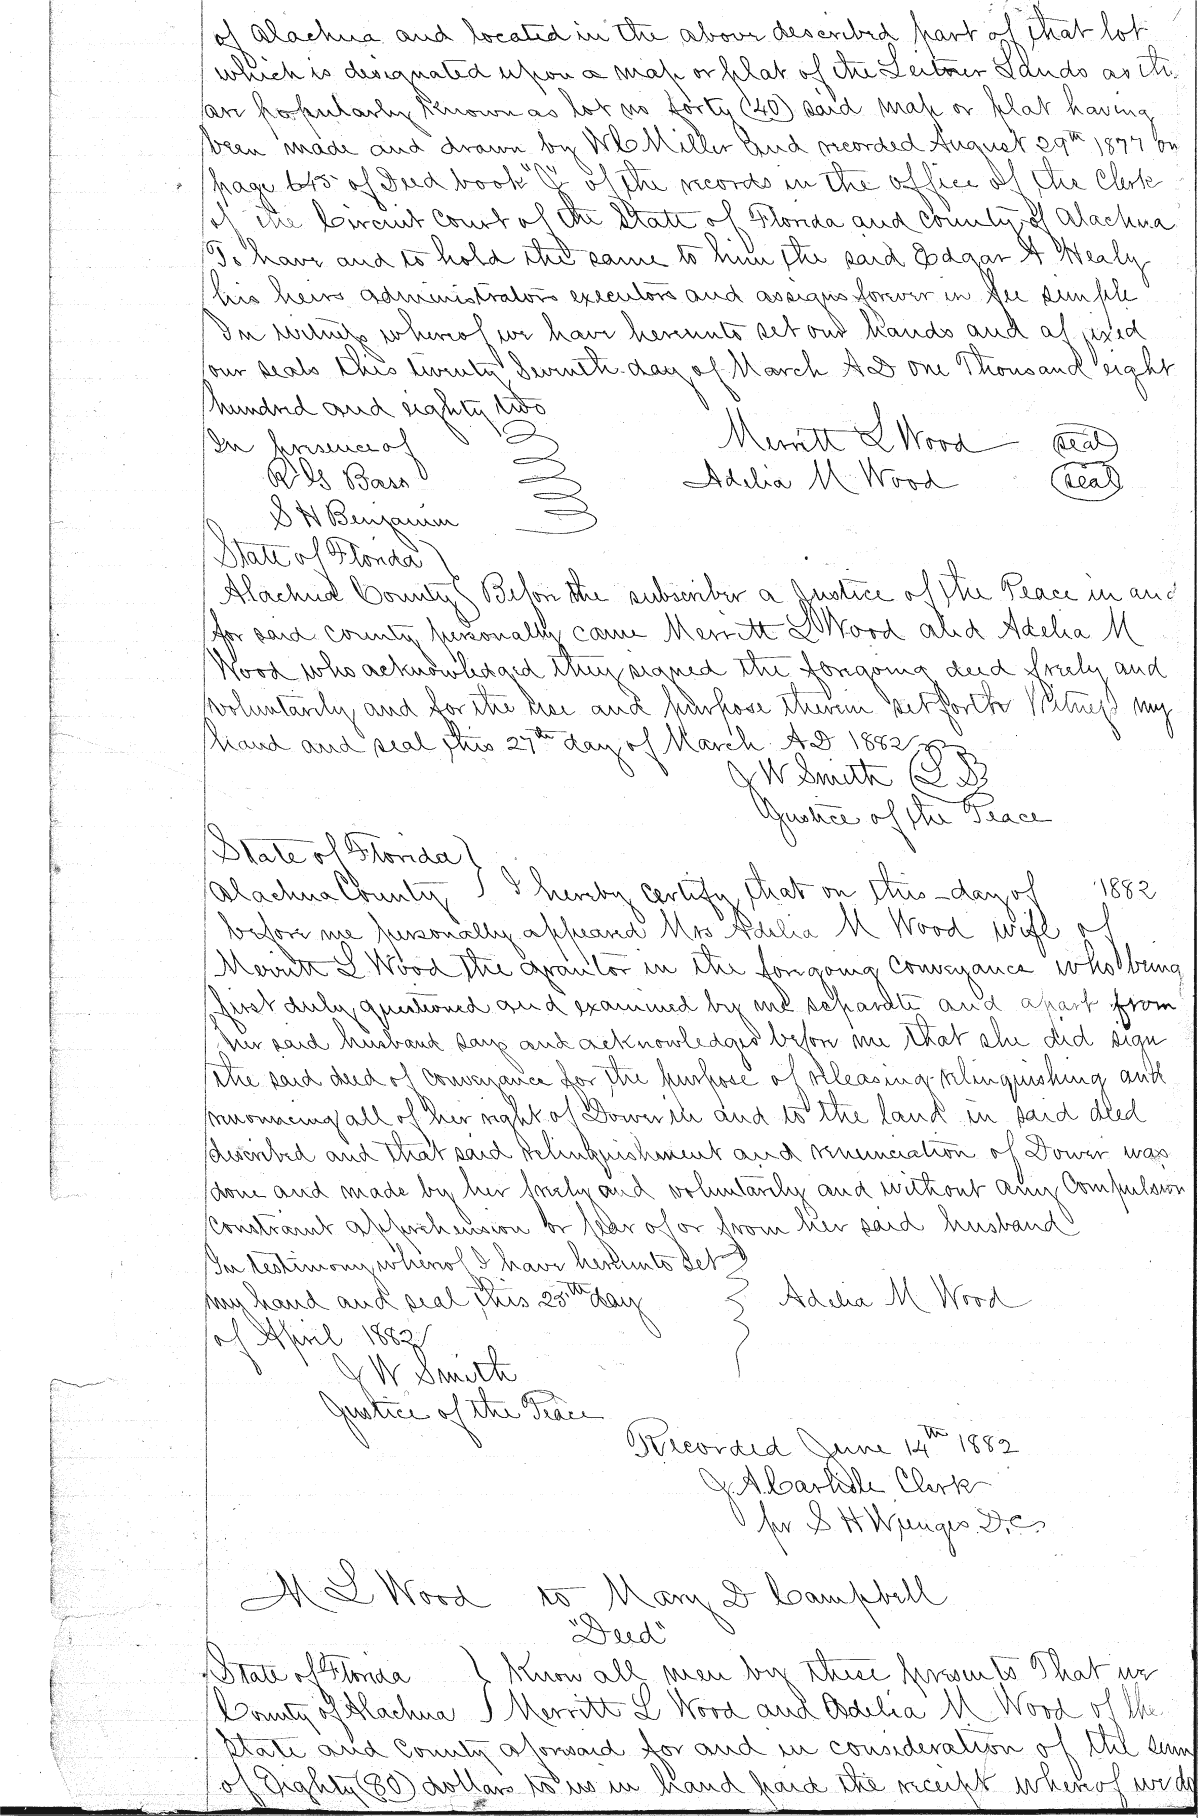 of Alachua and located in the above described part of that lot
which is designated upon a map or plat of the Leitner Lands as th
are popularly known as lot no forty (40) said map or plat having
been made and drawn by W C Miller and recorded August 29th 1877 on
page 645 of Deed book of the records in the office of the Clerk
of the Circuit Court of the State of Florida and county of Alachua
To have and to hold the same to him the said Edgar A Healy
his heirs administrators executors and assigns forever in fee simple
In witness whereof we have hereunto set our hands and affixed
our seals this twenty Seventh day of March AD one Thousand eight
hundred and eighty two
In presence of Merritt L Wood seal
R G Bass Adelia M Wood seal
S H Benjamin
State of Florida }
Alachua County } Before the subscriber a Justice of the Peace in and
for said county personally came Merritt L Wood and Adelia M
Wood who acknowledged they signed the foregoing deed freely and
voluntarily and for the use and purpose therein set forth Witness my
hand and seal this 27th day of March AD 1882
J W Smith
Justice of the Peace
State of Florida }
Alachua County } I hereby certify that on this - day of 1882
before me personally appeared Mrs Adelia M Wood wife of
Merritt L Wood the grantor in the foregoing conveyance who being
first duly questioned and examined by me separate and apart from
her said husband says and acknowledges before me that she did sign
the said deed of conveyance for the purpose of releasing relinquishing and
renouncing all of her right of Dower in and to the land in said deed
described and that said relinquishment and renunciation of Dower was
done and made by her freely and voluntarily and without any Compulsion
constraint apprehension or fear of or from her said husband
In testimony whereof I have hereunto set
my hand and seal this 25th day } Adelia M Wood
of April 1882
J W Smith
Justice of the Peace
Recorded June 14th 1882
J. A. Carlisle Clerk
per S H Wienges D.C.
M L Wood to Mary D Campbell
"Deed"
State of Florida } Know all men by these presents That we
County of Alachua } Merritt L Wood and Adelia M Wood of the
State and County aforesaid for and in consideration of the sum
of Eighty (80) dollars to us in hand paid the receipt whereof we do